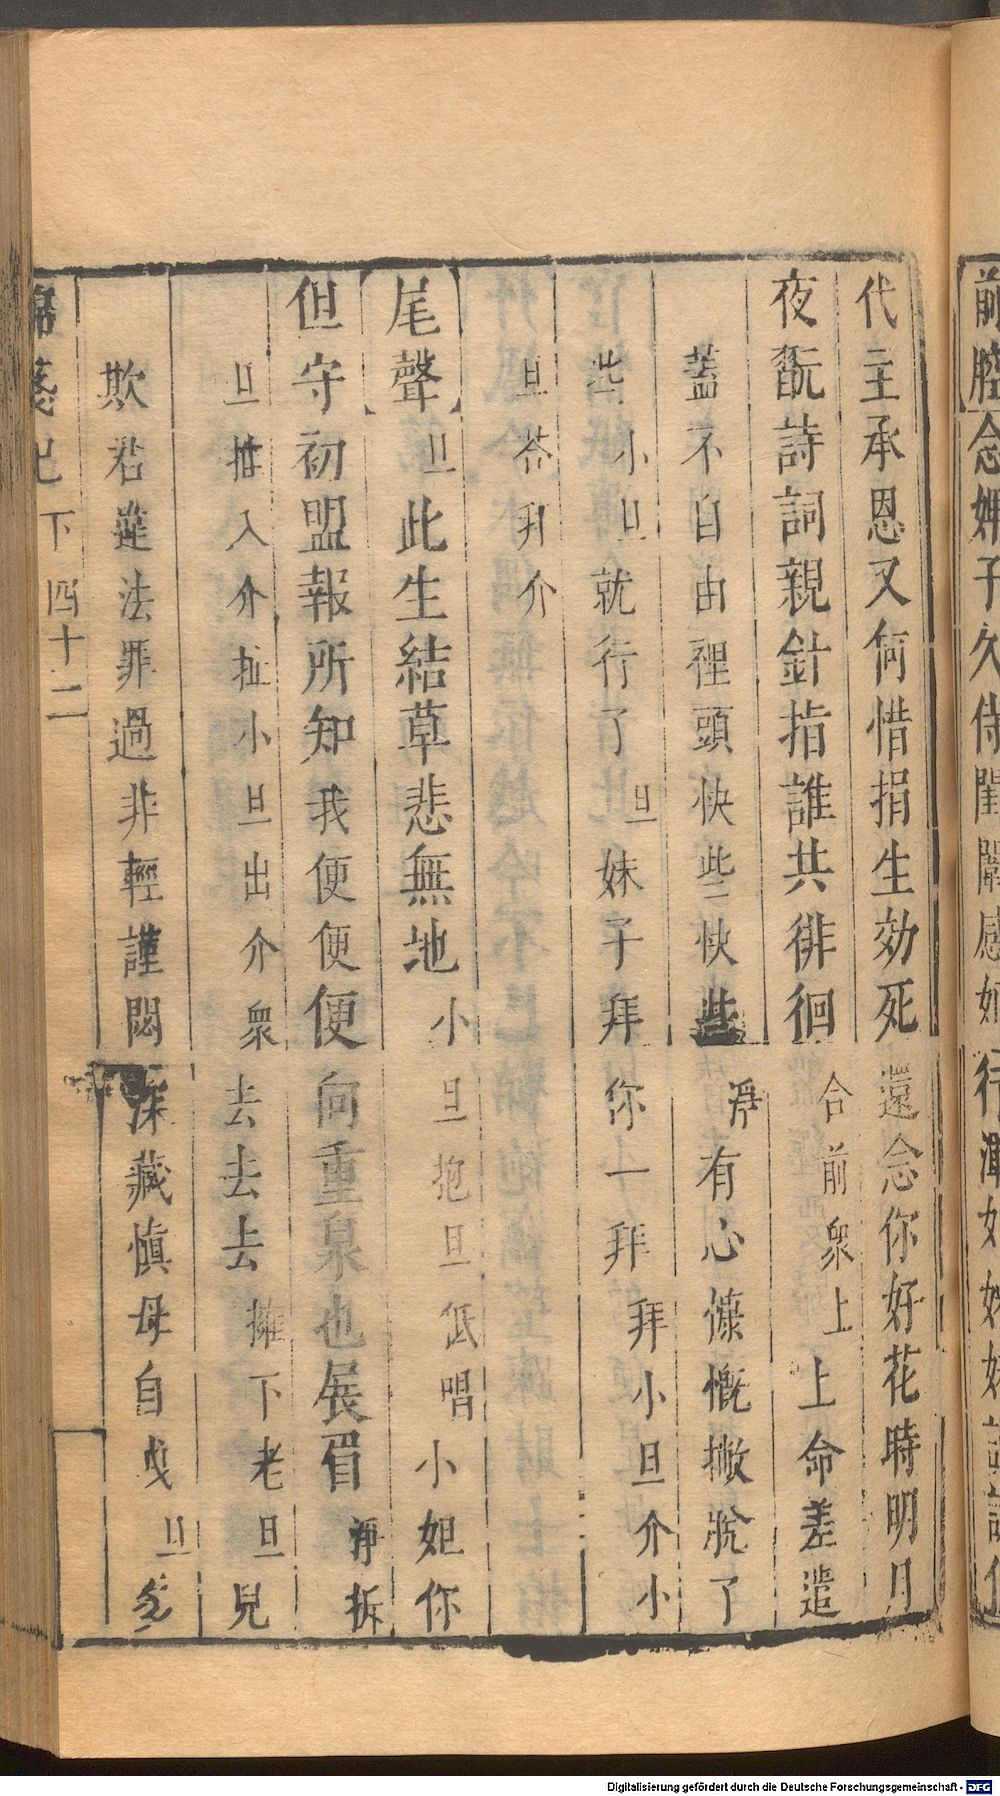 前腔念婢子久侍閨闈感
代主承恩又何惜捐生効死還念你好花時明月
夜翫詩詞親針指誰共徘徊合前衆上上命差遣
蓋不自由裡頭快些快些淨有心慷慨撇脫了
些小旦就行了旦妹子拜你一拜拜小旦介小
旦荅拜介
尾聲旦此生結草悲無地小旦抱旦低唱小姐你
但守初盟報所知我便便便向重泉也展眉淨拆
旦推入介扯小旦出介衆去去去擁下老旦兒
欺君違法罪過非輕謹閟深藏慎毋自戾旦
錦箋記下四十二
Digitalisierung gefördert durch die Deutsche Forschungsgemeinschaft - DFG